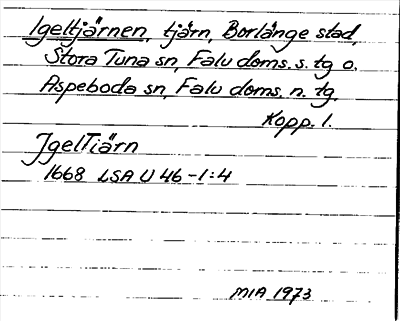 Igeltjärnen, tjärn, Borlänge stad,
Stora Tuna sn, Falu doms. s. tg o.
Aspeboda sn, Falu doms. n. tg.
Kopp. l.
JgelTiärn
1668 LSA U 46-1:4
MIA 1973